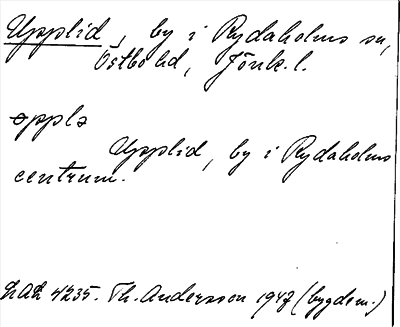 Upplid, by i Rydaholms sn,
Östbo hd, Jönk. l.
oppla
Upplid, by i Rydaholms
centrum.
LAL 4235. Th. Andersson 1947 (bygdem.)